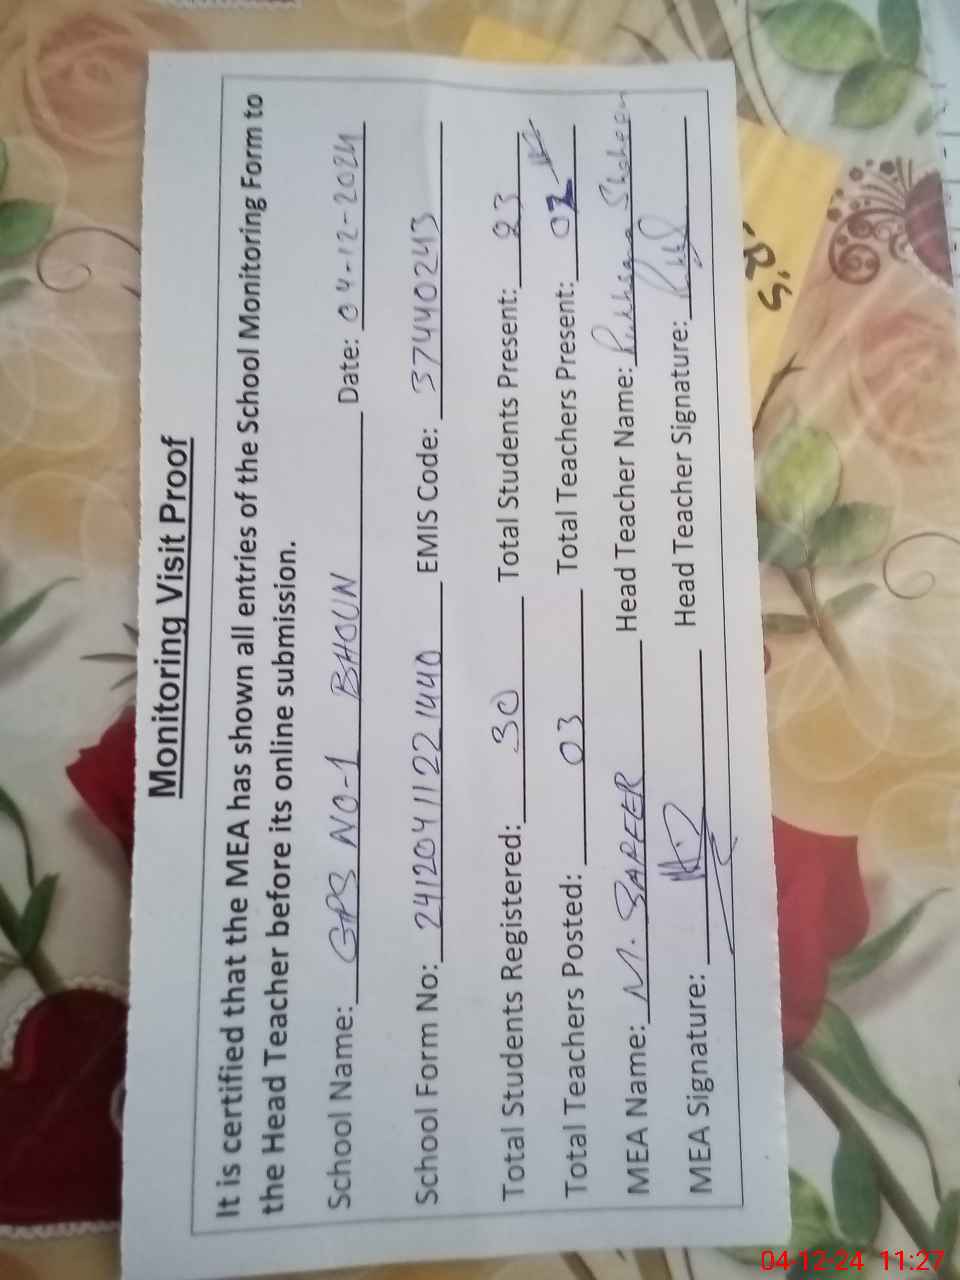 Monitoring Visit Proof
It is certified that the MEA has shown all entries of the School Monitoring Form to
the Head Teacher before its online submission.
School Name: GPS NO-1 BHOUN Date: 04-12-2024
School Form No: 2412041122 1440 EMIS Code: 37440243
Total Students Registered: 30 Total Students Present: 23
Total Teachers Posted: 03 Total Teachers Present: 02
MEA Name: M. SAFEER Head Teacher Name: Rukhsana Shaheen
MEA Signature: Head Teacher Signature:
R.
S.
04-12-24 11:27